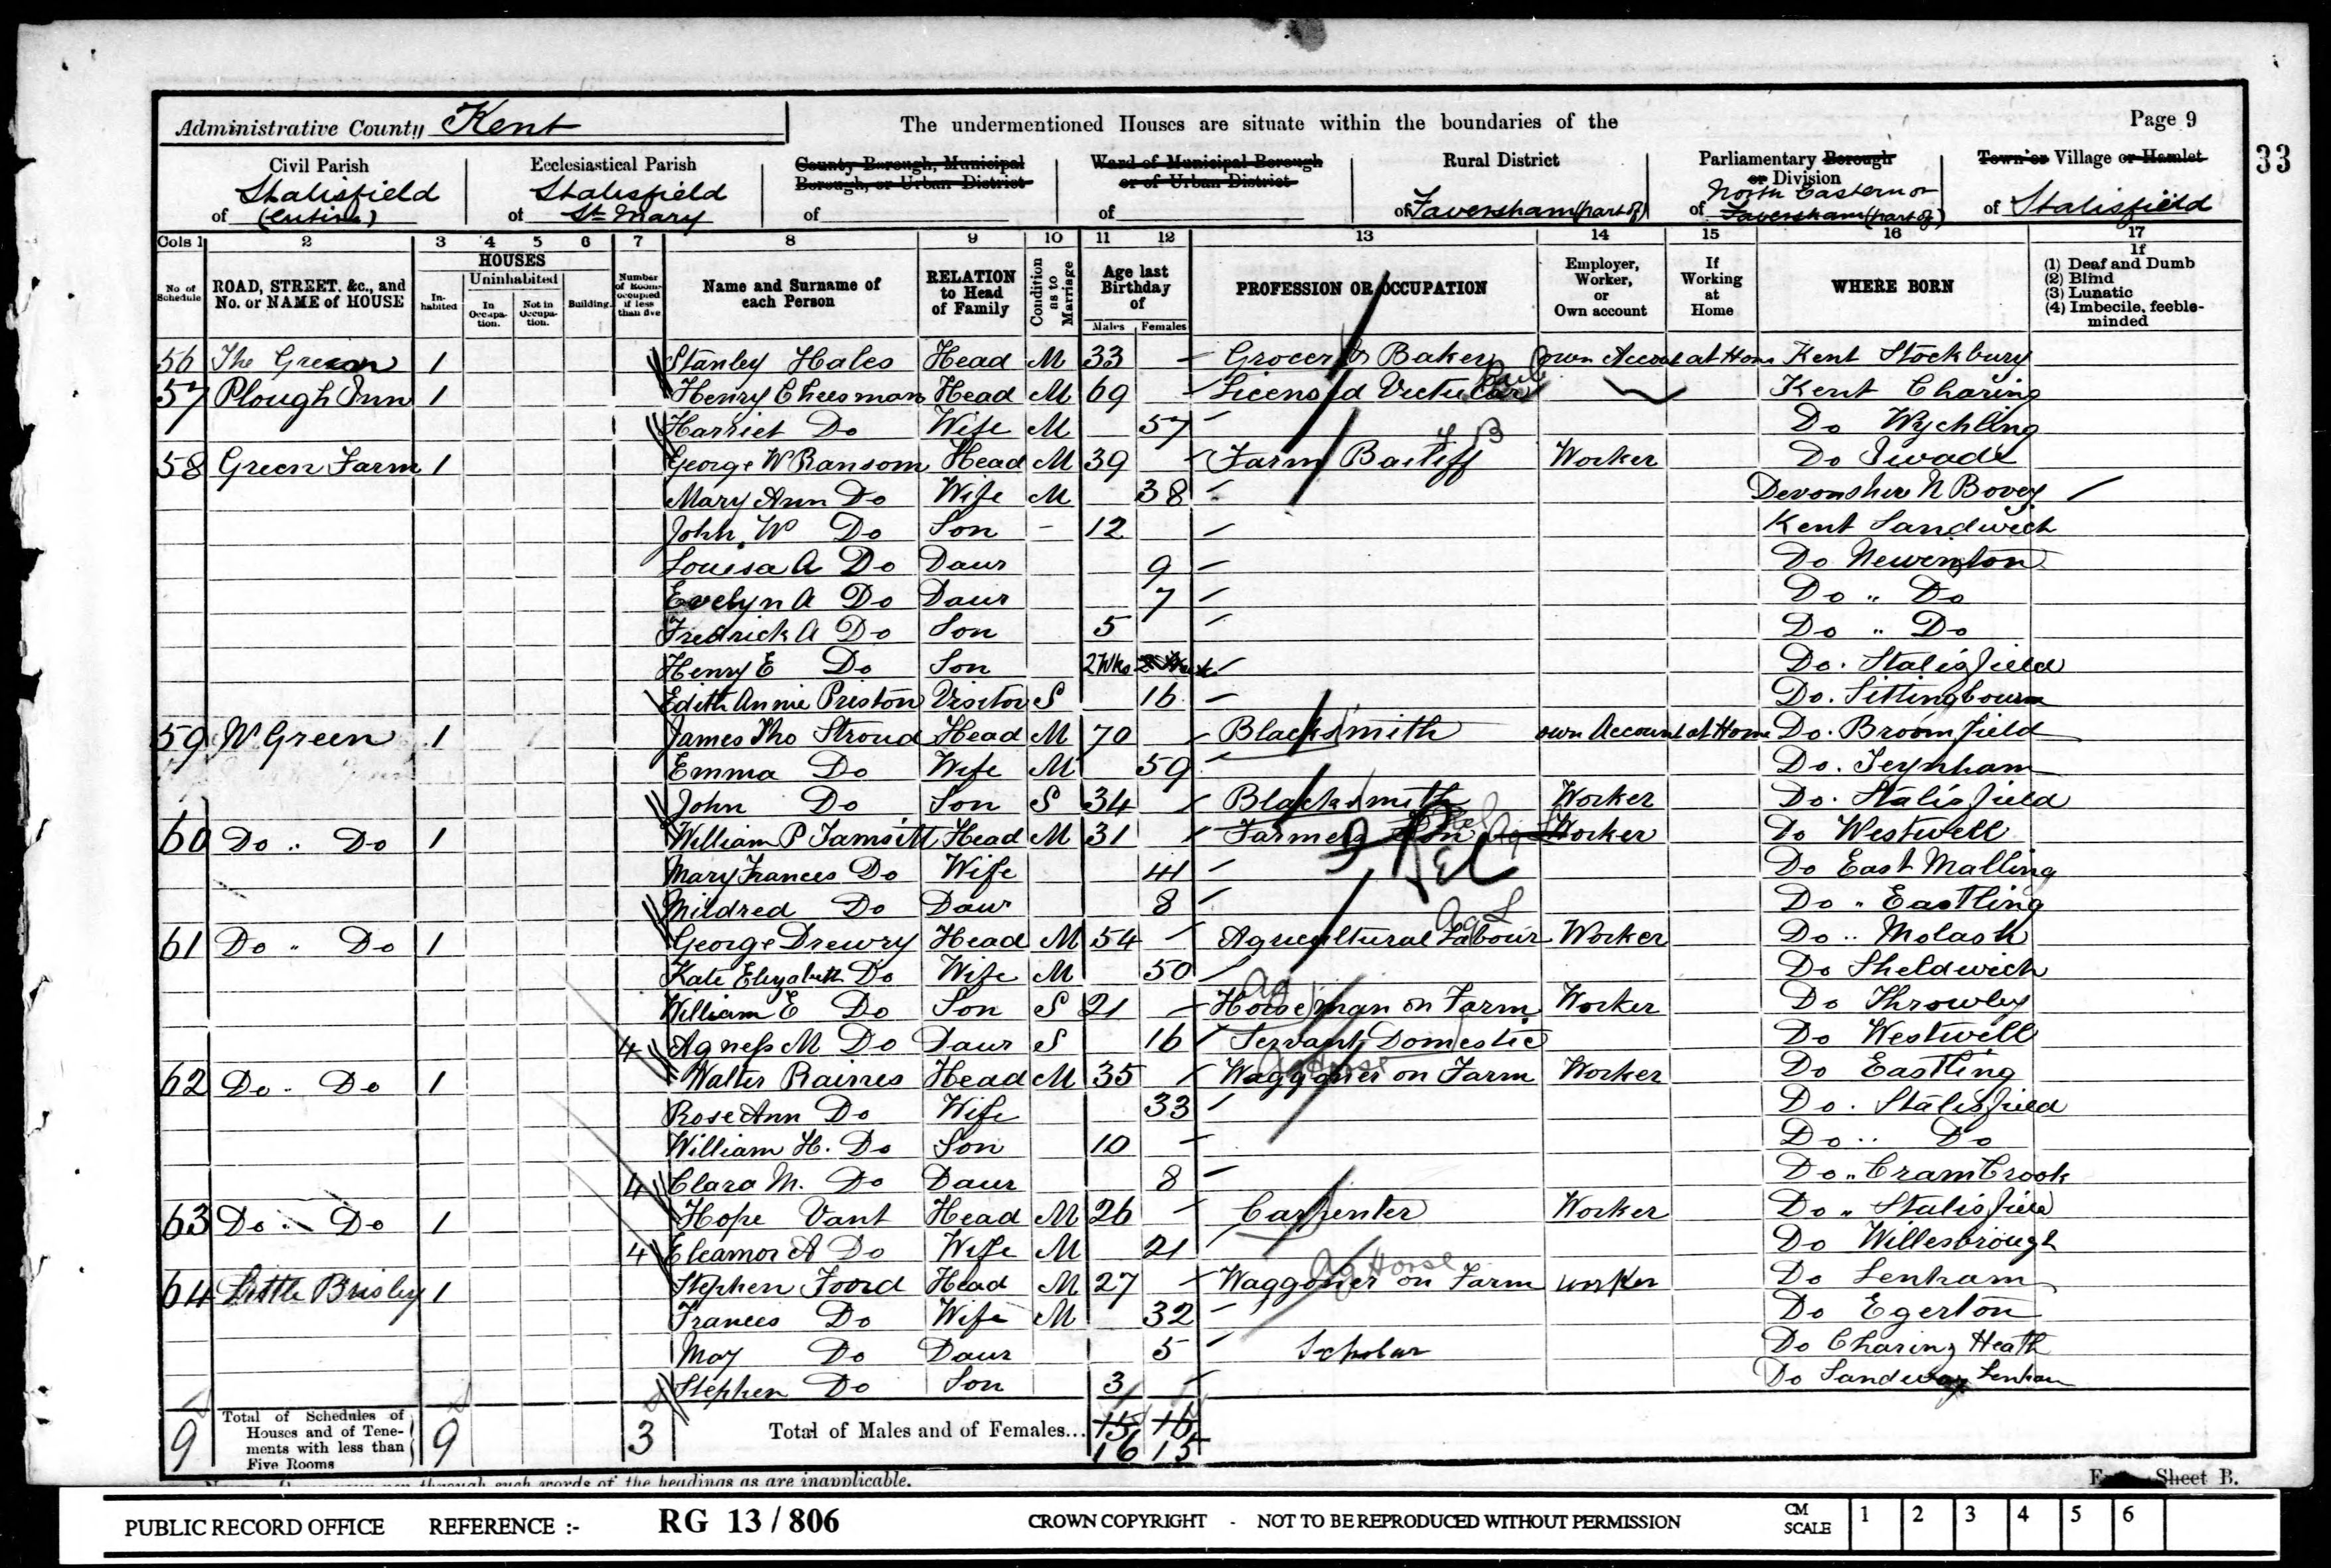 Administrative County Kent
The undermentioned Houses are situate within the boundaries of the
Page 9
33
Civil Parish of Stalisfield (entire)
Ecclesiastical Parish of Stalisfield St Mary
County Borough, Municipal Borough, or Urban District of
Ward of Municipal Borough or of Urban District of
Rural District of Faversham (part of)
Parliamentary Borough or Division of North Eastern or Faversham (part of)
Town or Village or Hamlet of Stalisfield
Cols 1 2 3 4 5 6 7 8 9 10 11 12 13 14 15 16 17
No of Schedule
ROAD, STREET, &c., and No. or NAME of HOUSE
HOUSES
Inhabited
Uninhabited
In Occupation.
Not in Occupation.
Building.
Number of Rooms occupied if less than five
Name and Surname of each Person
RELATION to Head of Family
Condition as to Marriage
Age last Birthday of
Males Females
PROFESSION OR OCCUPATION
Employer, Worker, or Own account
If Working at Home
WHERE BORN
If
(1) Deaf and Dumb
(2) Blind
(3) Lunatic
(4) Imbecile, feeble-minded
56 The Green 1 Stanley Hales Head M 33 Grocer & Baker own Account at Home Kent Stockbury
57 Plough Inn 1 Henry Cheesman Head M 69 Licensed Kent Charing
Harriet Do Wife M 57 Do Wychling
58 Green Farm 1 George W Ransom Head M 39 Farm Bailiff Worker Do Iwade
Mary Ann Do Wife M 38 Devonsher N Bovey
John W Do Son - 12 Kent Sandwich
Louisa A Do Daur 9 Do Newington
Evelyn A Do Daur 7 Do " Do
Fredrick A Do Son 5 Do " Do
Henry E Do Son 2 Wks Do. Stalisfield
Edith Annie Preston Visitor S 16 Do. Sittingbourn
59 N Green 1 James Tho Stroud Head M 70 Blacksmith own Account at Home Do. Broomfield
Emma Do Wife M 59 Do. Teynham
John Do Son S 34 Blacksmith Worker Do. Stalisfield
60 Do " Do 1 William P Head M 31 Farmers Son Worker Do Westwell
Mary Frances Do Wife 41 Do East Malling
Mildred Do Daur 8 Do " Eastling
61 Do " Do 1 George Drewry Head M 54 Agricultural Labour Worker Do " Molash
Kate Elizabeth Do Wife M 50 Do Sheldwich
William E Do Son S 21 Horseman on Farm Worker Do Throwley
4 Agness M Do Daur S 16 Servant Domestic Do Westwell
62 Do " Do 1 Walter Raines Head M 35 Waggoner on Farm Worker Do Eastling
Rose Ann Do Wife 33 Do. Stalisfield
William H. Do Son 10 Do " Do
4 Clara M. Do Daur 8 Do " Crambrook
63 Do " Do 1 Hope Vant Head M 26 Carpenter Worker Do " Stalisfield
4 Eleamor A Do Wife M 21 Do Willesbrough
64 Little Brisley 1 Stephen Foord Head M 27 Waggoner on Farm worker Do Lenham
Frances Do Wife M 32 Do Egerton
May Do Daur 5 Scholar Do Charing Heath
Stephen Do Son 3 Do Sandway Lenham
9 Total of Schedules of Houses and of Tenements with less than Five Rooms 9 3 Total of Males and of Females... 15 16
16 15
Sheet B.
PUBLIC RECORD OFFICE REFERENCE :- RG 13 / 806 CROWN COPYRIGHT - NOT TO BE REPRODUCED WITHOUT PERMISSION CM SCALE 1 2 3 4 5 6